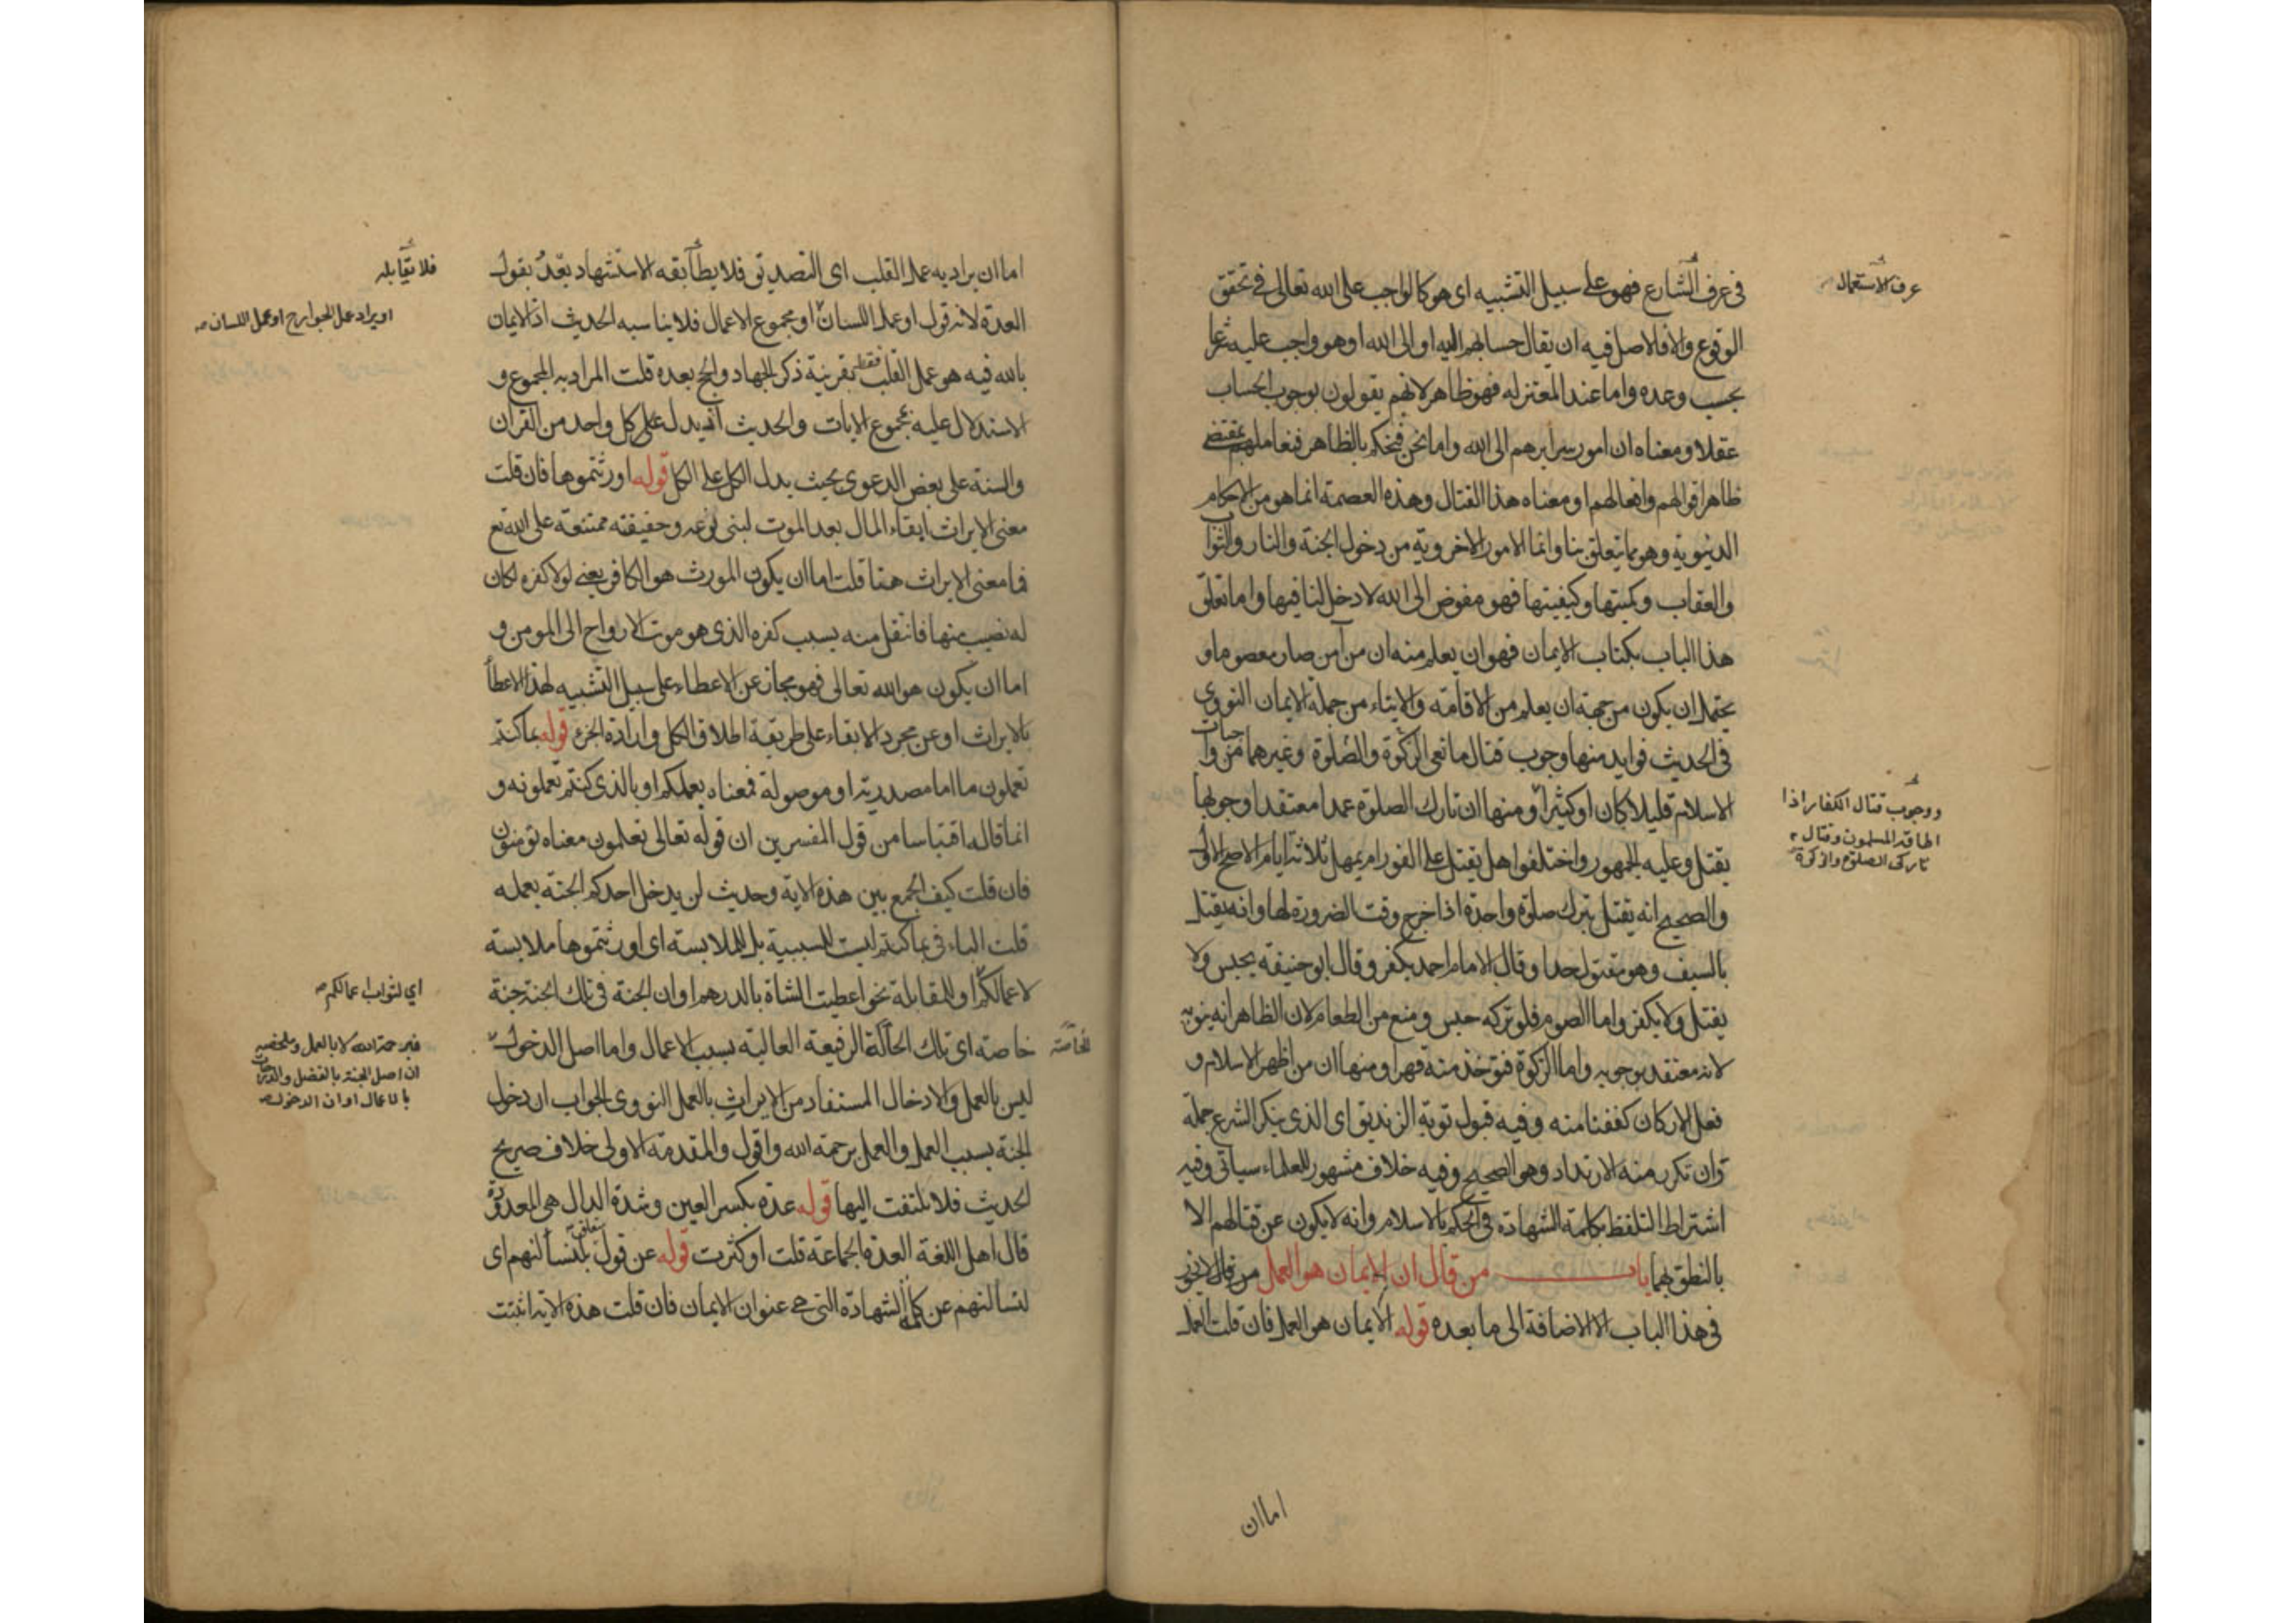 في عرف الشارع فهو على سبيل التشبيه اى هو كالواجب على الله تعالى في تحقق
عرف الاستعمال
الوقوع والا فالاصل فيه ان يقال حسابهم اليه او الى الله او هو واجب عليه شرعا
بحسب وعده واما عند المعتزله فهو ظاهر لانهم يقولون بوجوب الحساب
عقلا ومعناه ان امور سرايرهم الى الله واما نحن فنحكم بالظاهر فنعاملهم بمقتضى
ظاهر اقوالهم وافعالهم او معناه هذا القتال وهذه العصمة انما هو من الاحكام
الدنيوية وهو مما يتعلق بنا واما الامور الاخروية من دخول الجنة والنار والثواب
والعقاب وكميتها وكيفيتها فهو مفوض الى الله لا دخل لنا فيها واما تعلق
هذا الباب بكتاب الايمان فهو ان يعلم منه ان من آمن صار معصوما و
يحتمل ان يكون من جهة ان يعلم من الاقامة والايتاء من جملة الايمان النووى
في الحديث فوايد منها وجوب قتال مانعى الزكوة والصلوة وغيرهما من واجبات
الاسلام قليلا كان او كثيرا ومنها ان تارك الصلوة عمدا معتقدا وجوبها
ووجوب قتال الكفار اذا
اطاقه المسلمون وقتال
تاركى الصلوة والزكوة
يقتل وعليه الجمهور واختلفوا هل يقتل على الفور ام يمهل ثلاثة ايام الاصح الاول
والصحيح انه يقتل بترك صلوة واحدة اذا خرج وقت الضرورة لها وانه يقتل
بالسيف وهو مقتول حدا وقال الامام احمد يكفر وقال ابو حنيفة يحبس ولا
يقتل ولا يكفر واما الصوم فلو تركه حبس ومنع من الطعام لان الظاهر انه ينويه
لانه معتقد بوجوبه واما الزكوة فتؤخذ منه قهرا ومنها ان من اظهر الاسلام و
فعل الاركان كففنا منه وفيه قبول توبة الزنديق اى الذى ينكر الشرع جملة
وان تكرر منه الارتداد وهو الصحيح وفيه خلاف مشهور للعلماء سياتى وفيه
اشتراط التلفظ بكلمة الشهادة في الحكم بالاسلام وانه لا يكون عن قتالهم الا
بالنطق بهما باب من قال ان الايمان هو العمل من قال لا يجوز
في هذا الباب الا الاضافة الى ما بعده قوله الايمان هو العمل فان قلت العمل
اما ان
اما ان يراد به عمل القلب اى التصديق فلا يطابقه الاستشهاد بعد بقول
فلا يقابله
العدة لانه قول او عمل اللسان او مجموع الاعمال فلا يناسبه الحديث اذ الايمان
او يراد عمل الجوارح او عمل اللسان صح
بالله فيه هو عمل القلب فقط بقرينة ذكر الجهاد والحج بعده قلت المراد به المجموع و
الاستدلال عليه بمجموع الايات والحديث اذ يدل على كل واحد من القران
والسنة على بعض الدعوى بحيث يدل الكل على الكل قوله اورثتموها فان قلت
معنى الايراث ابقاء المال بعد الموت لبنى نوعه وحقيقته ممتنعة على الله تع
فما معنى الايراث هنا قلت اما ان يكون المورث هو الكافر يعنى لولا كفره لكان
له نصيب منها فانتقل منه بسبب كفره الذى هو موت الارواح الى المومن و
اما ان يكون هو الله تعالى فهو مجاز عن الاعطاء على سبيل التشبيه لهذا الاعطا
بالايراث او عن مجرد الابقاء على طريقة اطلاق الكل وارادة الجزء قوله بما كنتم
تعملون ما اما مصدرية او موصولة فمعناه بعملكم او بالذى كنتم تعملونه و
انما قال اقتباسا من قول المفسرين ان قوله تعالى تعلمون معناه تؤمنون
فان قلت كيف الجمع بين هذه الاية وحديث لن يدخل احدكم الجنة بعمله
قلت الباء في بما كنتم ليست للسببية بل للملابسة اى اورثتموها ملابسة
لاعمالكم او للمقابلة نحو اعطيت الشاة بالدرهم او ان الجنة في تلك الجنة جنة
اى لثواب اعمالكم صح
خاصة اى تلك الحالة الرفيعة العالية بسبب الاعمال واما اصل الدخول
الخاصة
فبرحمة الله لا بالعمل وملخصه
ان اصل الجنة بالفضل والدرجات
بالاعمال او ان الدخول صح
ليس بالعمل والادخال المستفاد من الايراث بالعمل النووى الجواب ان دخول
الجنة بسبب العمل والعمل برحمة الله واقول والمقدمة الاولى خلاف صريح
الحديث فلا يلتفت اليها قوله عدة بكسر العين وشدة الدال هى المعدودة
قال اهل اللغة العدة الجماعة قلت او كثرت قوله عن قول لنسألنهم اى
لنسألنهم عن كلمة الشهادة التى هى عنوان الايمان فان قلت هذه الاية اثبتت